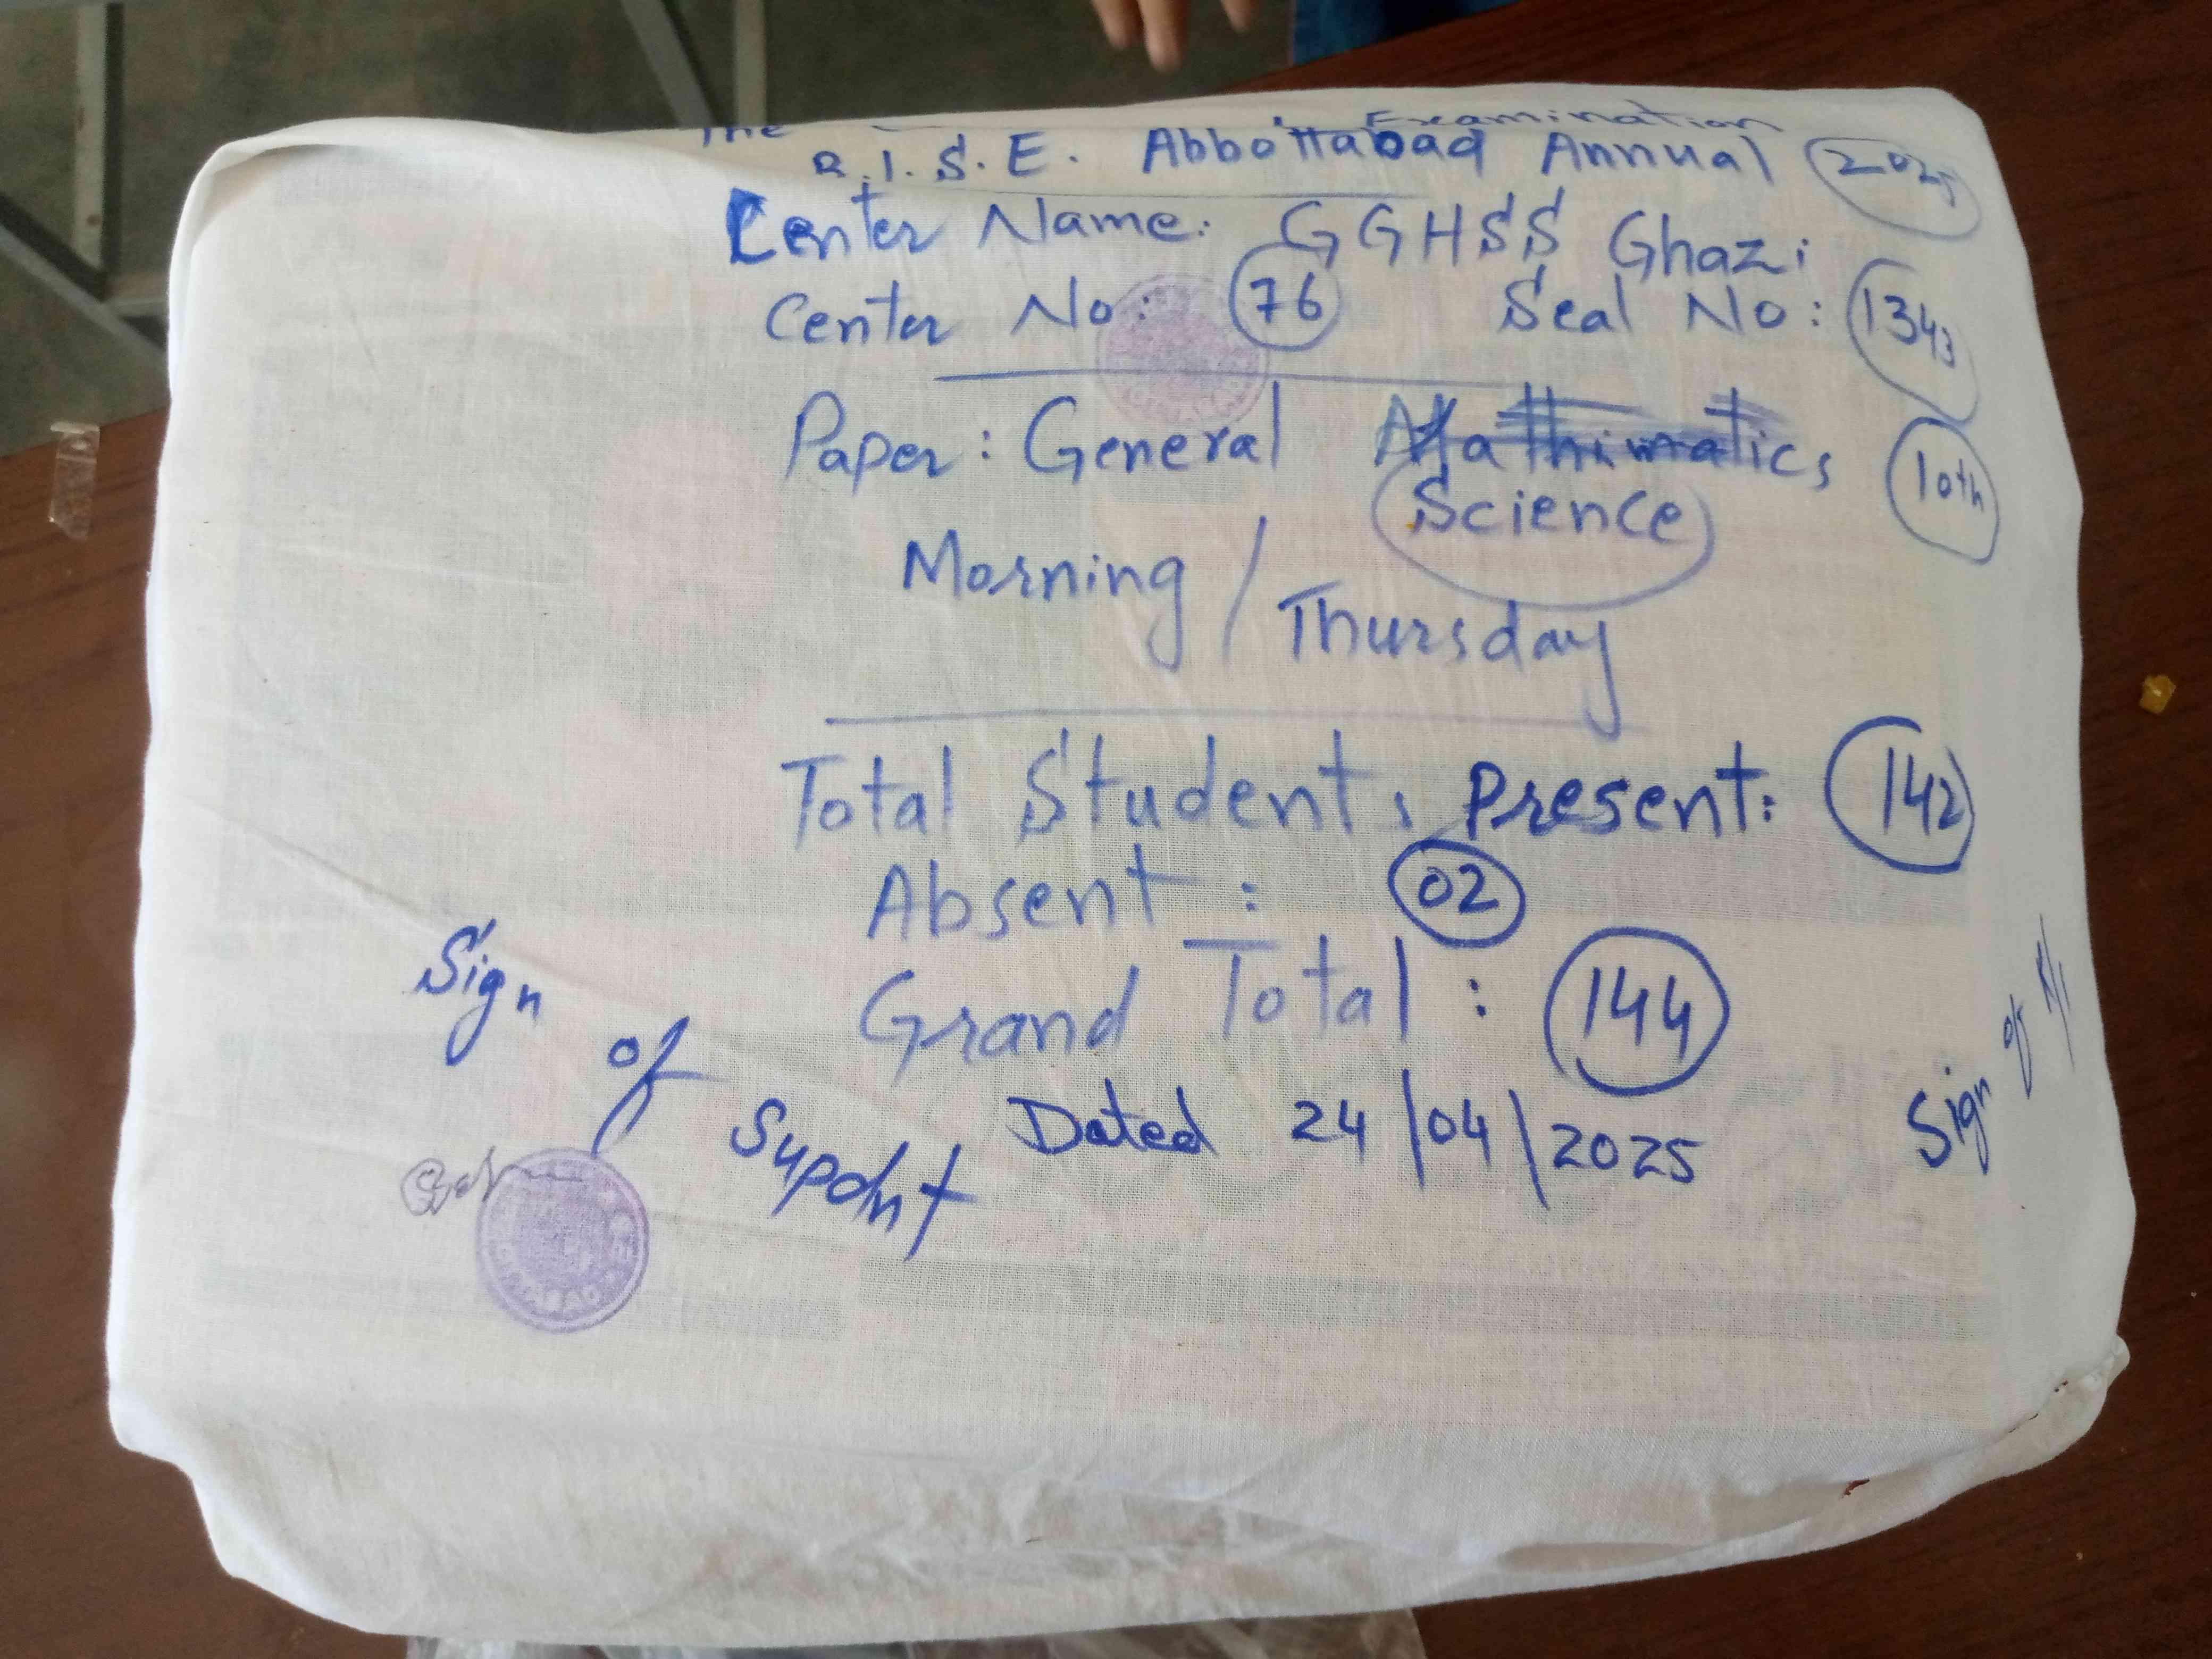 The Examination
B.I.S.E. Abbottabad Annual 2025
Center Name: GGHSS Ghazi
Center No: 76 Seal No: 1343
Paper: General Mathimatics 10th
Science
Morning / Thursday
Total Students Present: 142
Absent: 02
Grand Total: 144
Dated 24/04/2025
Sign of Supdnt
Sign of